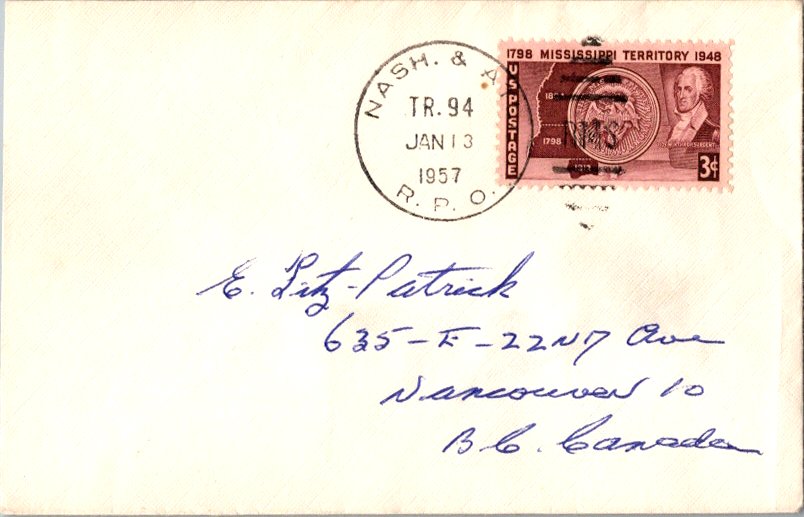 NASH. & A
TR. 94
JAN 13
1957
R. P. O.
1798 MISSISSIPPI TERRITORY 1948
U S POSTAGE
1798
RMS
3¢
E. Fitz-Patrick
635-E-22ND Ave
Vancouver 10
B C. Canada